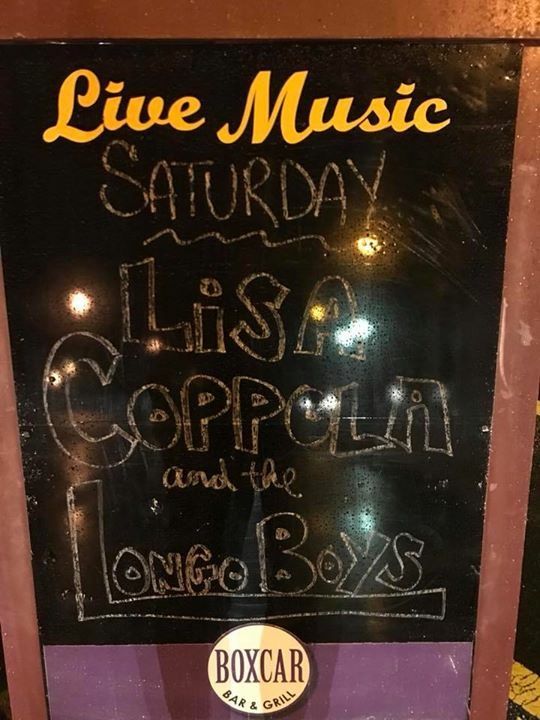 Live Music
SATURDAY
LiSA
COPPOLA
and the
LONGO BOYS
BOXCAR
BAR & GRILL